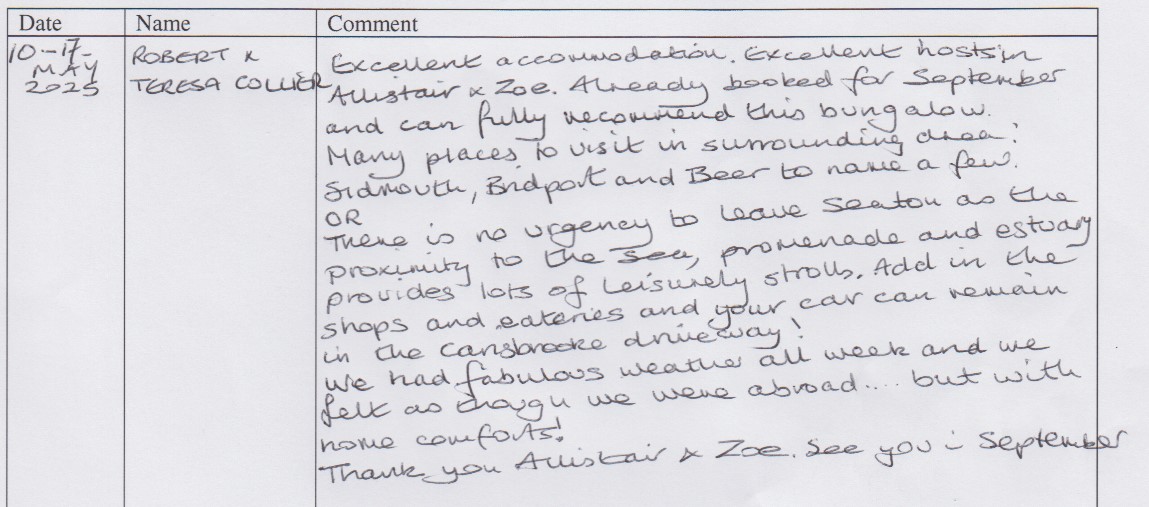 Date Name Comment
10-17- ROBERT & Excellent accommodation. Excellent hosts in
MAY TERESA COLLIER Allistair & Zoe. Already booked for September
2025 and can fully recommend this bungalow.
Many places to visit in surrounding area:
Sidmouth, Bridport and Beer to name a few.
OR
There is no urgency to leave Seaton as the
proximity to the sea, promenade and estuary
provides lots of leisurely strolls. Add in the
shops and eateries and your car can remain
in the Carisbrooke driveway!
We had fabulous weather all week and we
felt as though we were abroad.... but with
home comforts!
Thank you Allistair & Zoe. See you in September